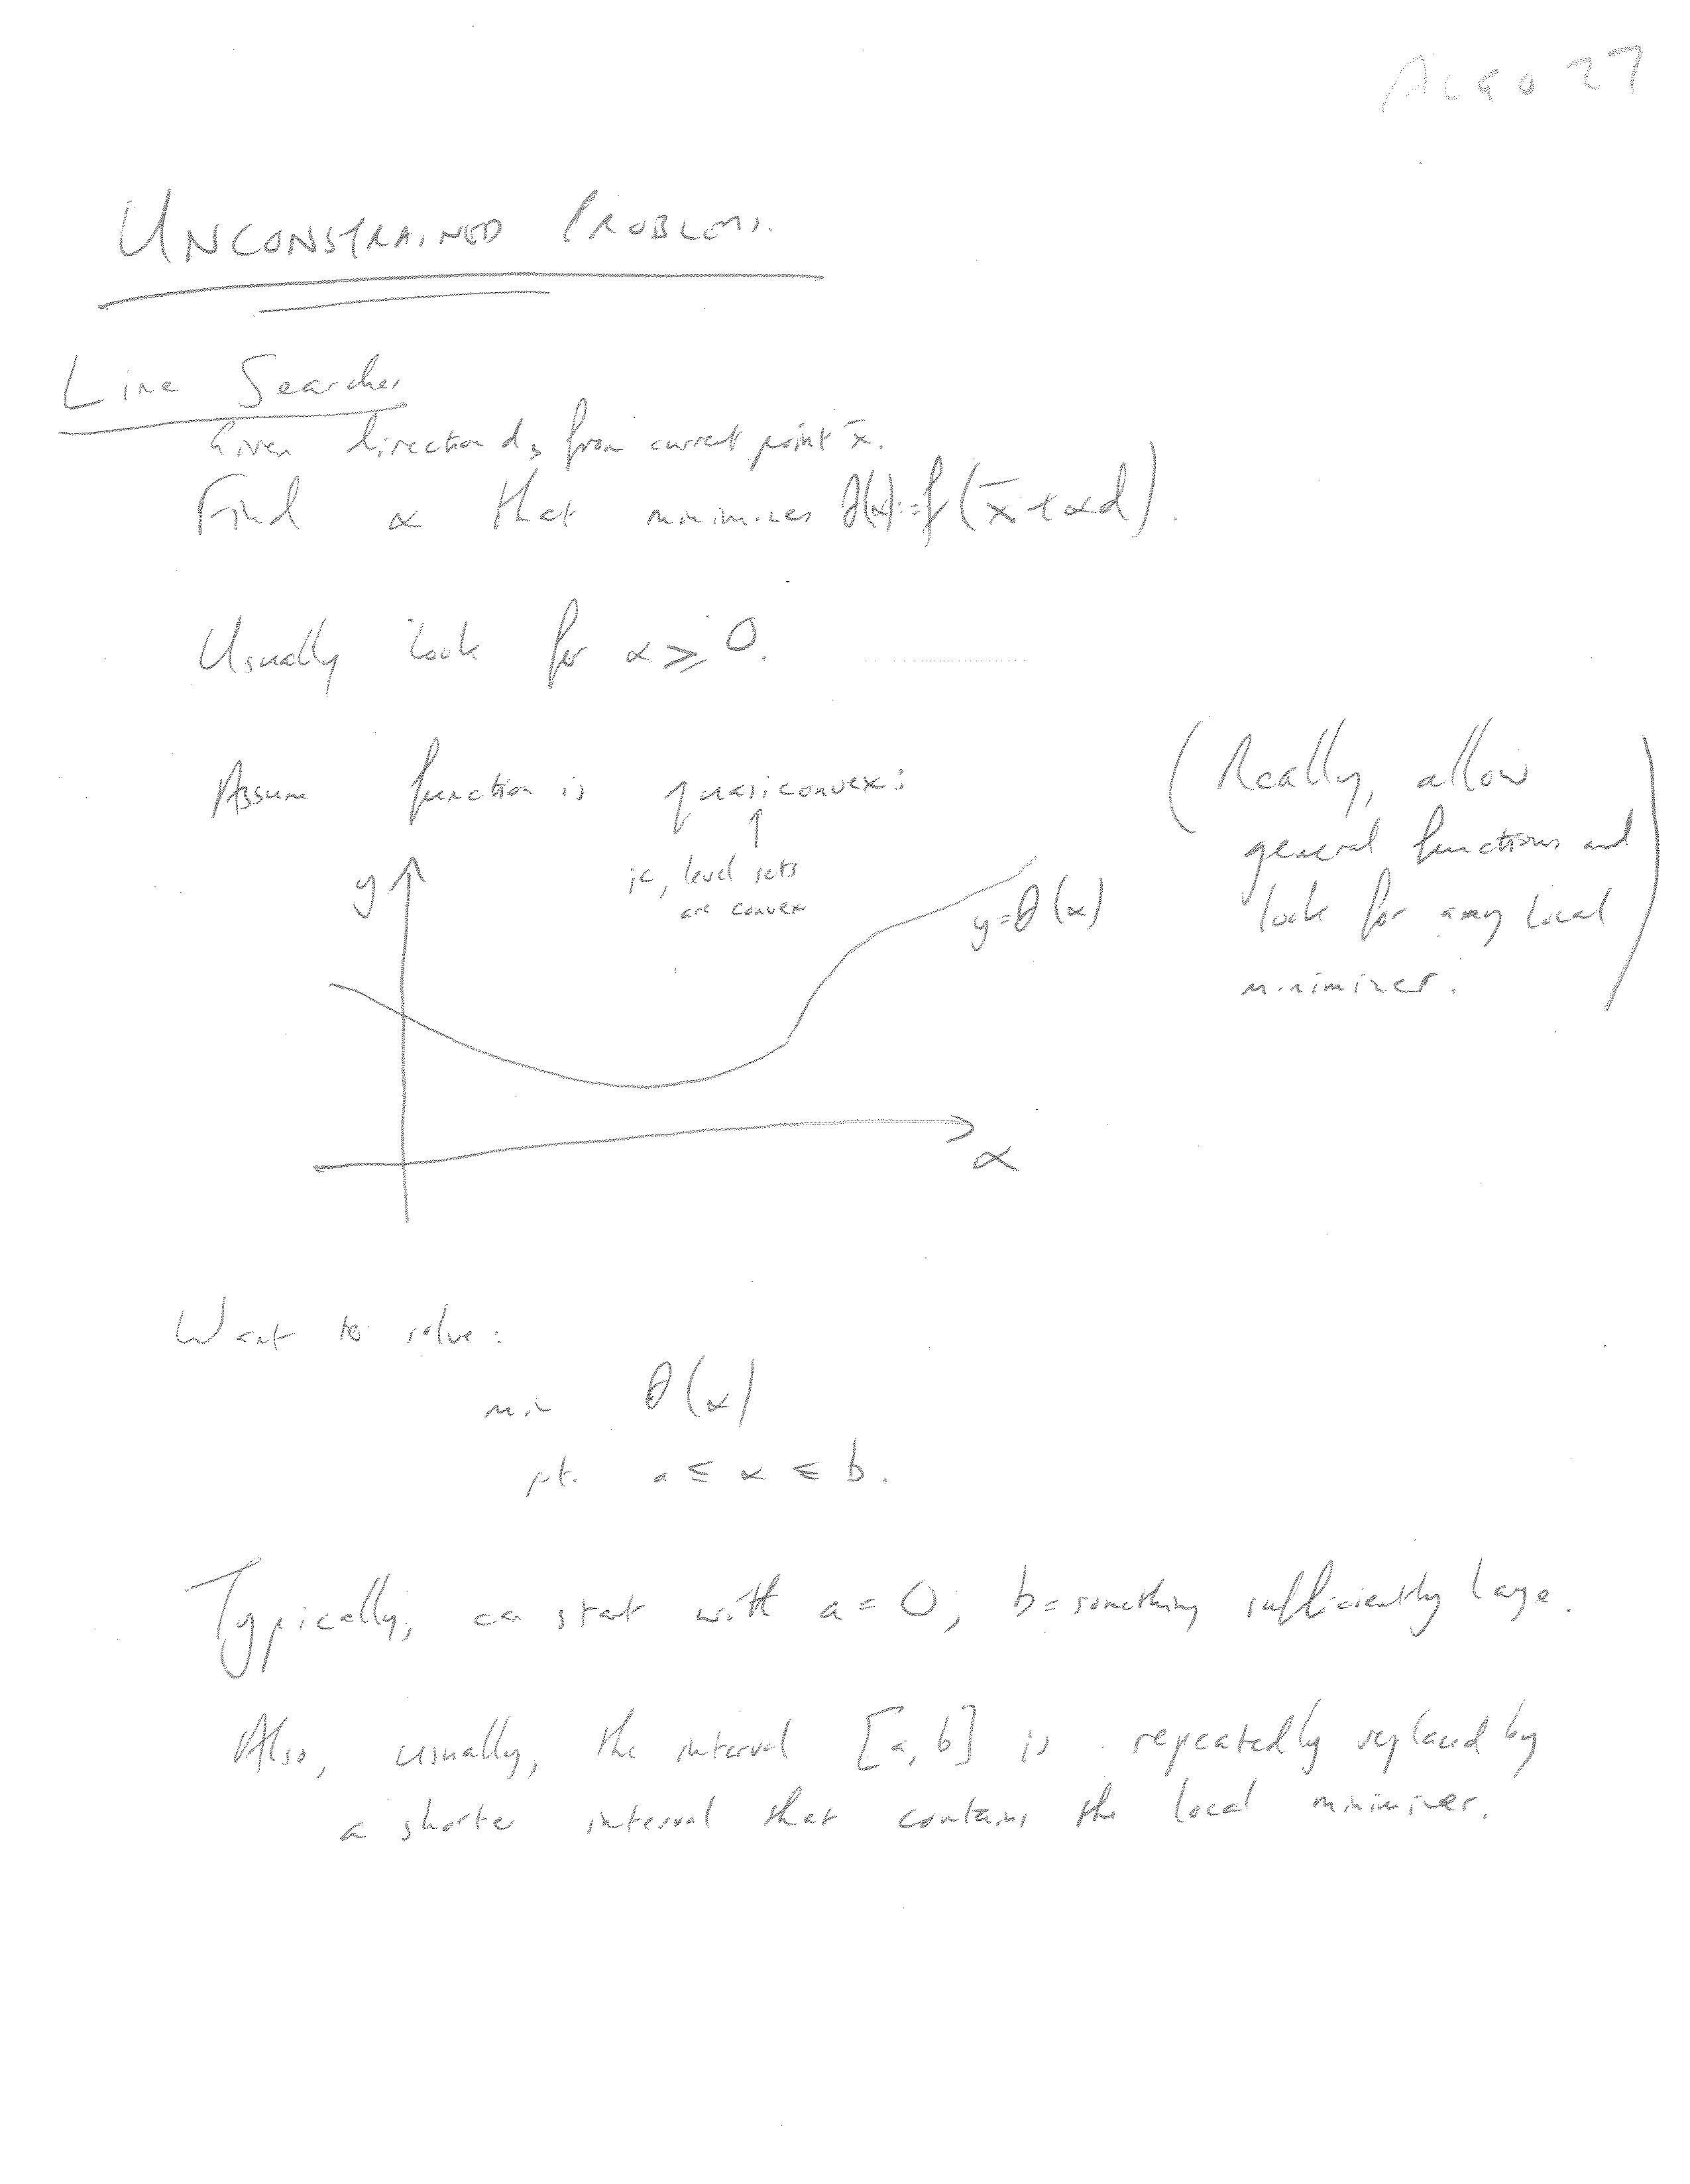 ALGO 27
UNCONSTRAINED PROBLEMS.
Line Searches
Given direction d, from current point x̄.
Find α that minimizes θ(α):=f(x̄+αd).
Usually look for α ≥ 0.
Assume function is quasiconvex:
ie, level sets
are convex
(Really, allow
general functions and
look for any local
minimizer.)
y
y=θ(α)
α
Want to solve:
min θ(α)
st. a ≤ α ≤ b.
Typically, can start with a = 0, b = something sufficiently large.
Also, usually, the interval [a, b] is repeatedly replaced by
a shorter interval that contains the local minimizer.